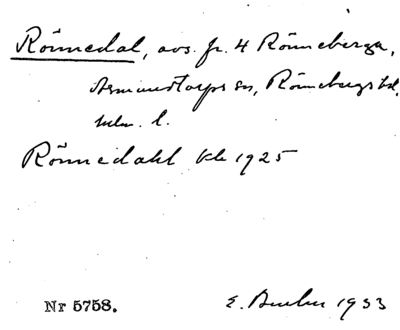 Rönnedal, avs. fr. 4 Rönneberga,
Asmundtorps sn, Rönnebergs hd,
Mlm. l.
Rönnedahl kb 1925
Nr 5758. E. 1933